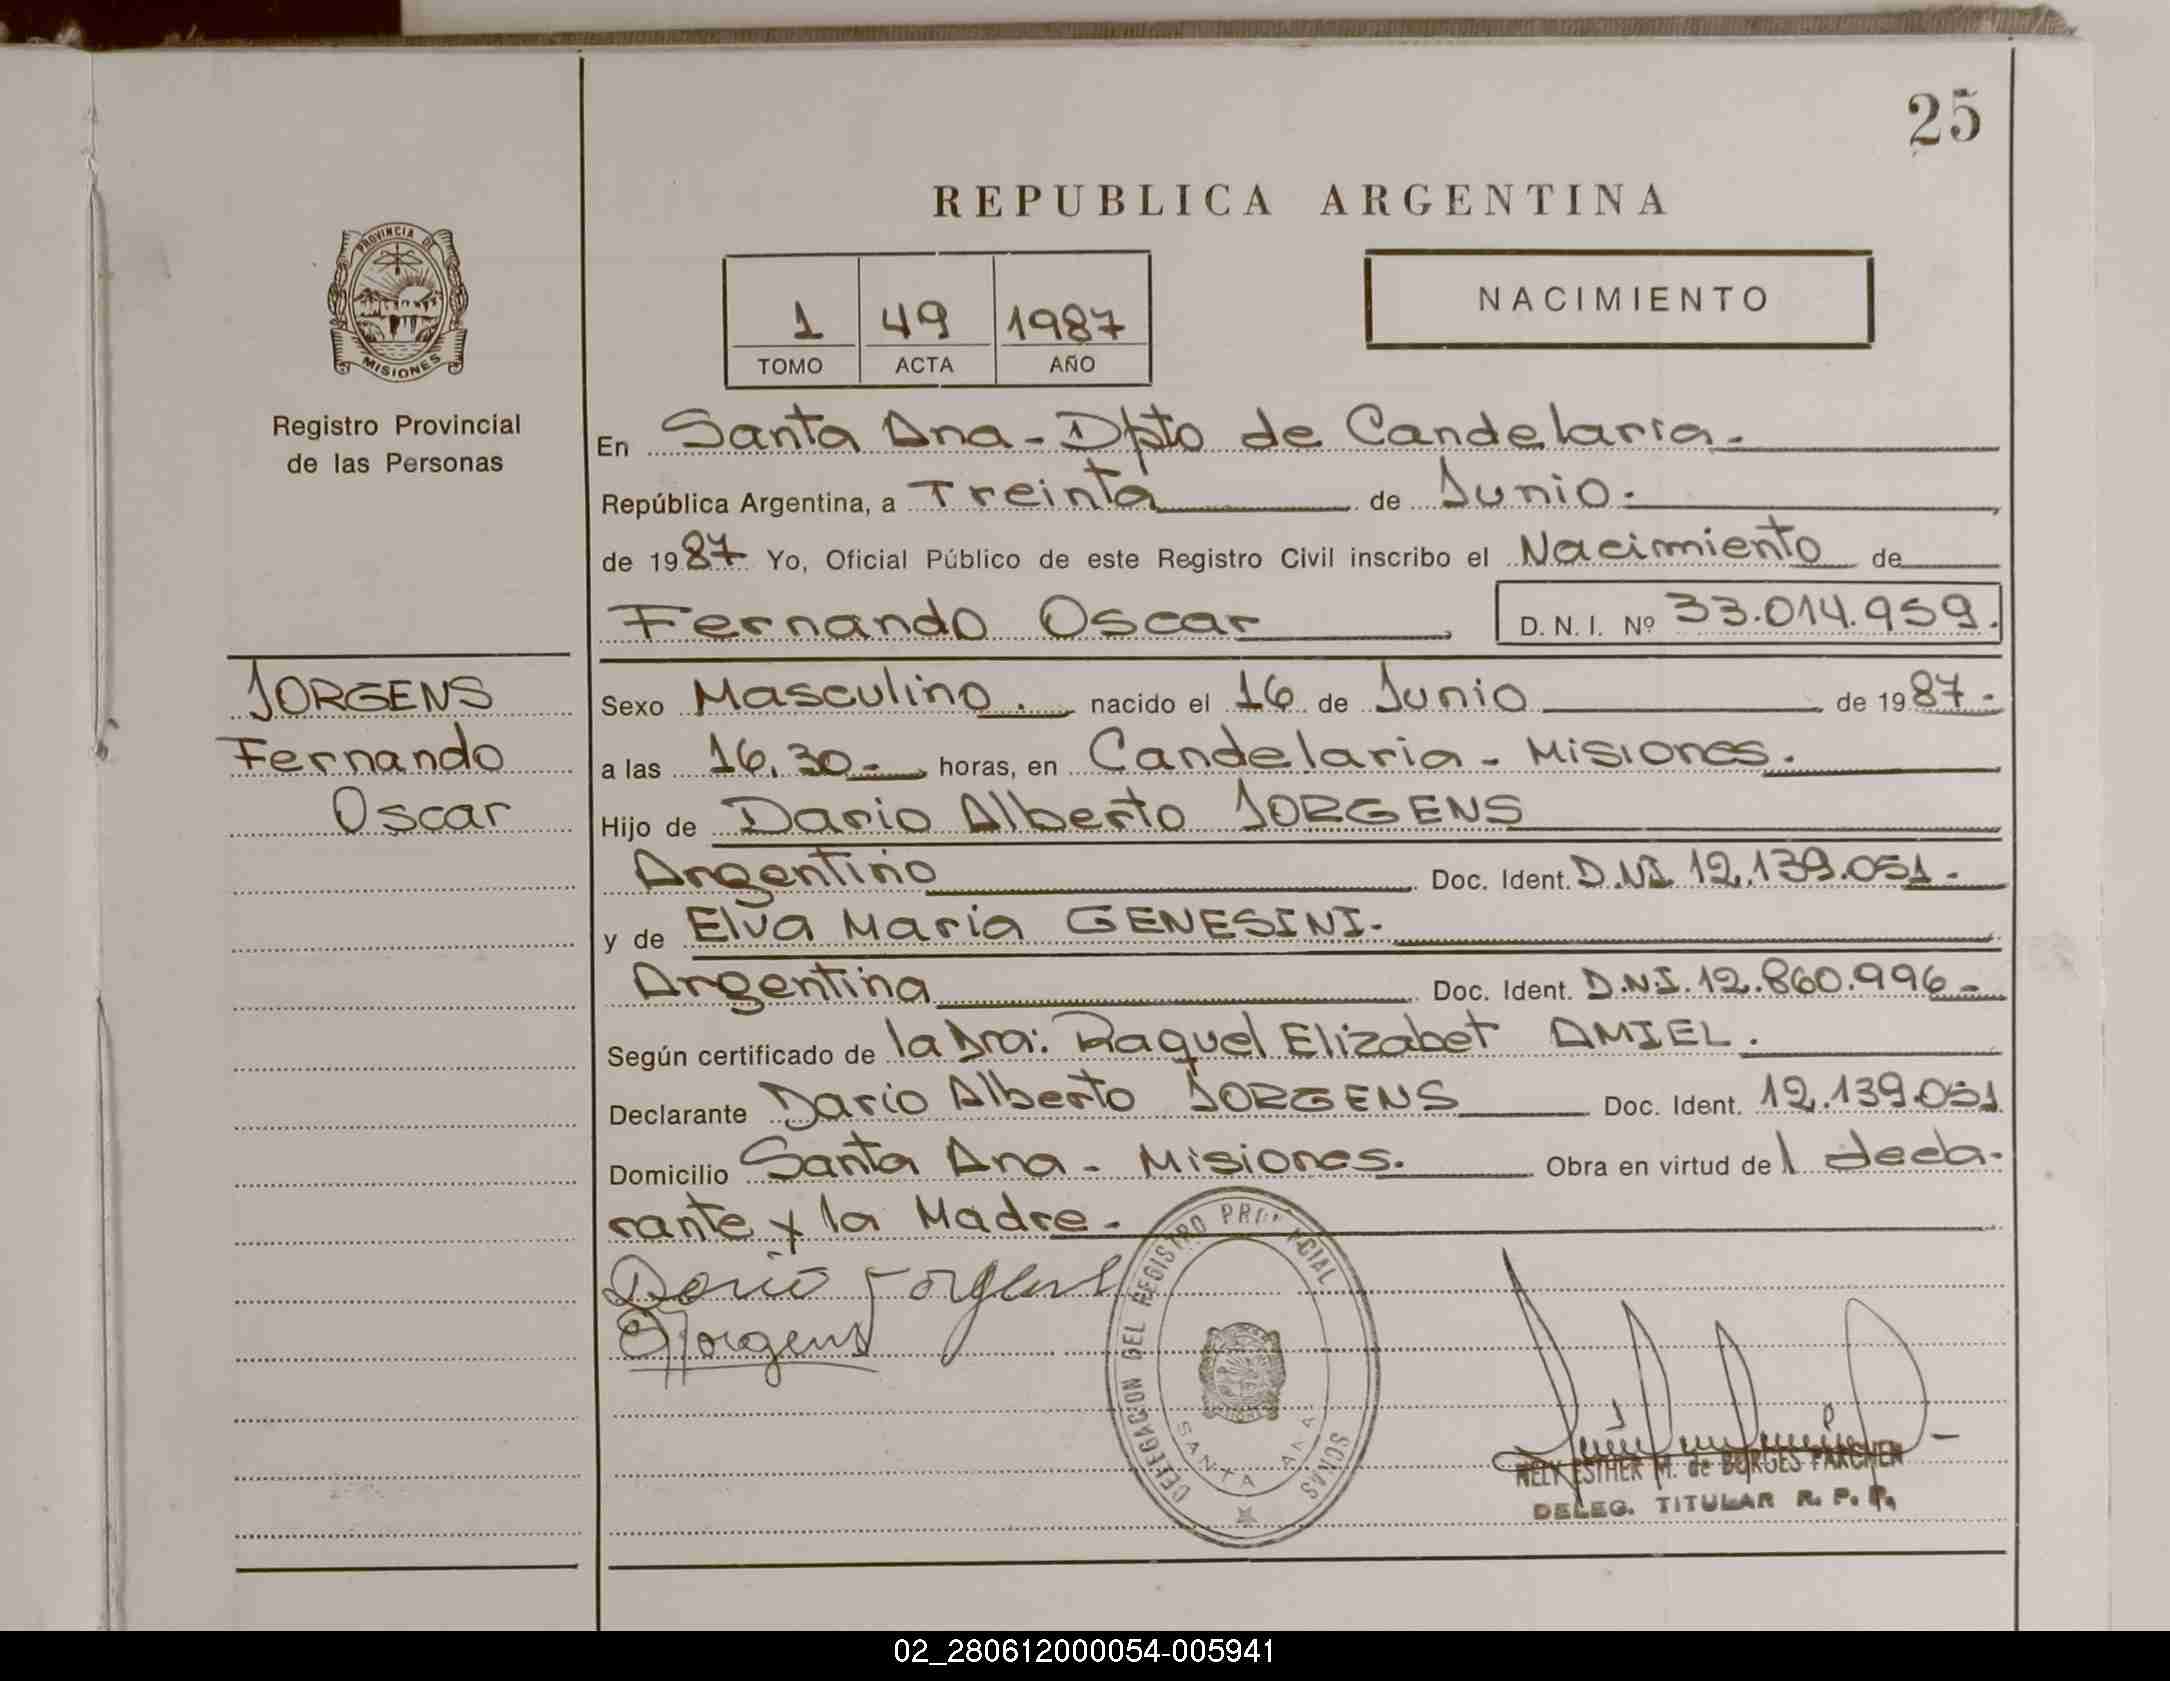 25
REPUBLICA ARGENTINA
PROVINCIA DE
MISIONES
Registro Provincial
de las Personas
1 49 1987
TOMO ACTA AÑO
NACIMIENTO
En Santa Ana - Dpto de Candelaria.
República Argentina, a Treinta de Junio.
de 1987 Yo, Oficial Público de este Registro Civil inscribo el Nacimiento de
Fernando Oscar D. N. I. Nº 33.014.959.
JORGENS
Fernando
Oscar
Sexo Masculino. nacido el 16 de Junio de 1987.
a las 16.30 horas, en Candelaria - Misiones.
Hijo de Dario Alberto JORGENS
Argentino Doc. Ident. D.N.I. 12.139.051.
y de Elva Maria GENESINI.
Argentina Doc. Ident. D.N.I. 12.860.996
Según certificado de la Dra: Raquel Elizabet AMIEL.
Declarante Dario Alberto JORGENS Doc. Ident. 12.139.051
Domicilio Santa Ana - Misiones. Obra en virtud del decla-
rante y la Madre.
Dario Jorgens
Jorgens
DELEGACION DEL REGISTRO PROVINCIAL
SONAS
SANTA ANA
NELY ESTHER M. de BORGES PARCHEN
DELEG. TITULAR R. P. P.
02_280612000054-005941